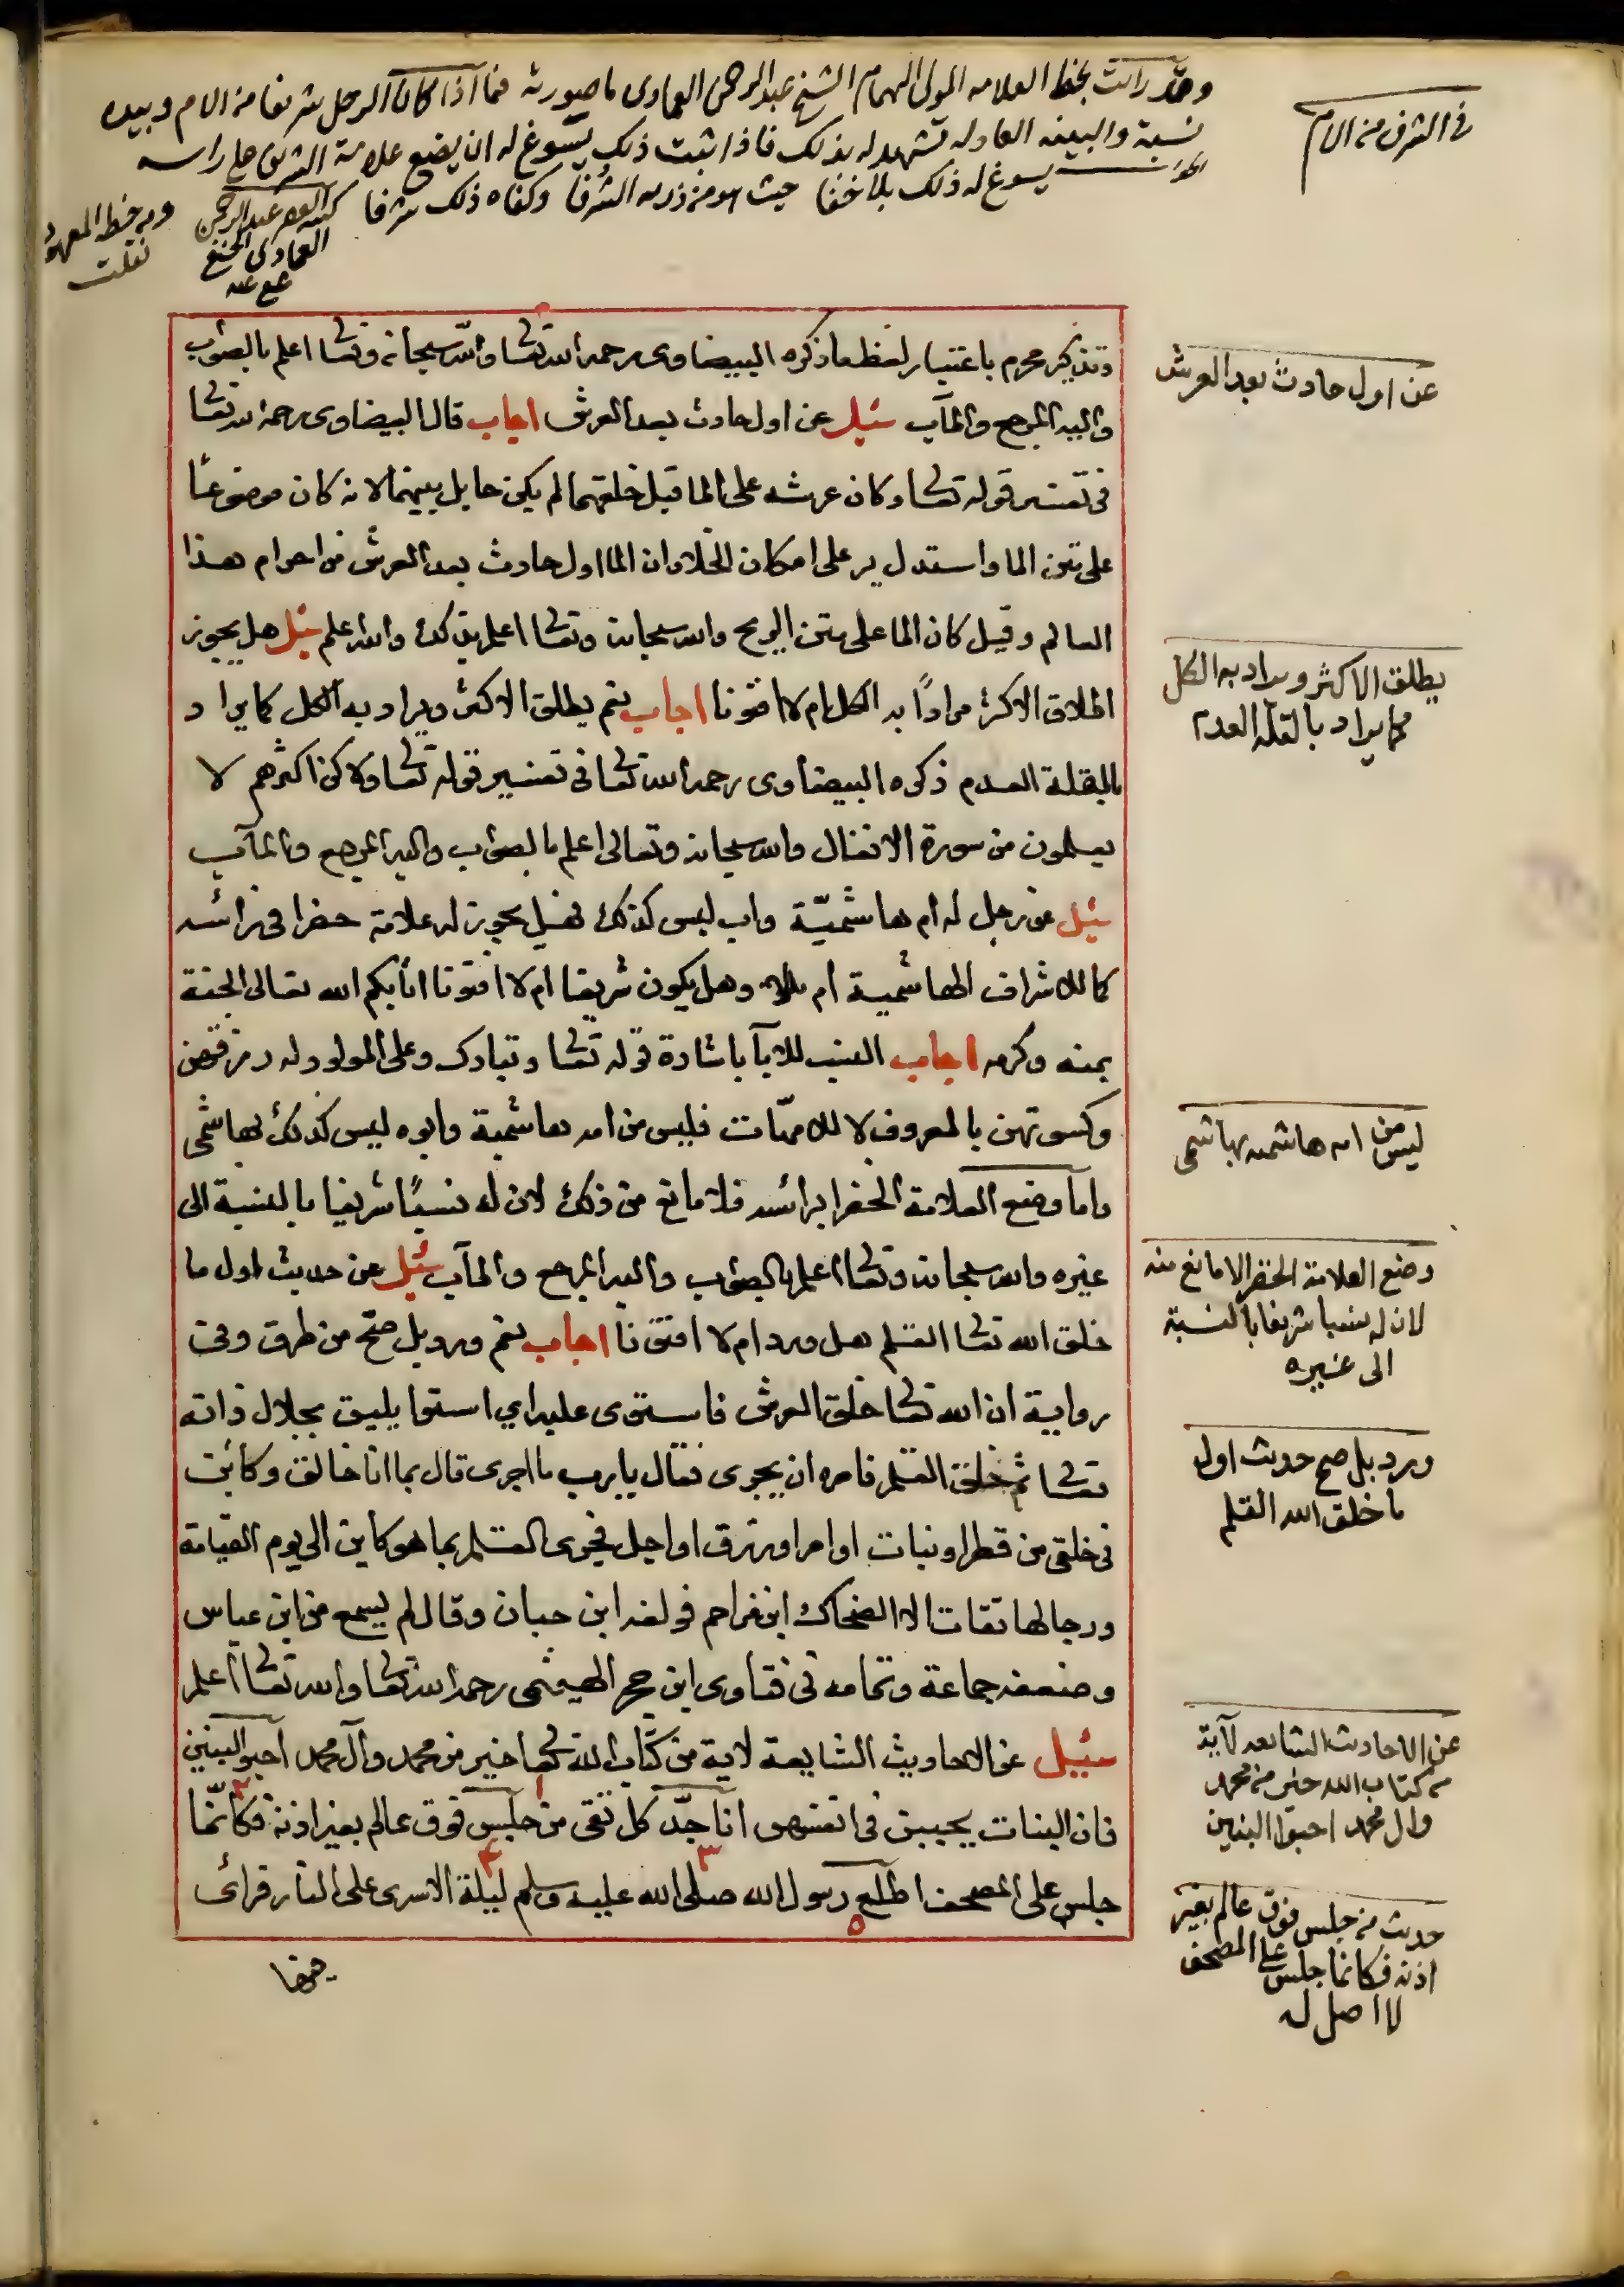 في الشرف من الام
وقد رايت بخط العلامه المولى الهمام الشيخ عبد الرحمن العمادى ما صورته فيما اذا كان الرجل شريفا من الام وبيده
نسبة والبينه العادله تشهد له بذلك فاذا ثبت ذلك يسوغ له ان يضع علامة الشرف على راسه
يسوغ له ذلك بلا خفا حيث هو من ذريه الشرفا وكفاه ذلك شرفا كتبه الفقير عبد الرحمن
العمادى الحنفي
عفي عنه
ومن خطه المعهود
نقلت
وتذكير محرم باعتبار لفظ ما ذكره البيضاوى رحمه الله تعا والله سبحانه وتعا اعلم بالصواب
واليه المرجع والمآب سئيل عن اول حادث بعد العرش اجاب قال البيضاوى رحمه الله تعا
في تفسير قوله تعا وكان عرشه على الما قبل خلقهما لم يكن حايل بينهما لا نه كان موضوعًا
على متن الما واستدل به على امكان الخلا وان الما اول حادث بعد العرش من اجرام هذا
العالم وقيل كان الما على متن الريح والله سبحانه وتعا اعلم بذلك والله علم سئل هل يجوز
اطلاق الاكثر مرادًا به الكل ام لا افتونا اجاب نعم يطلق الاكثر ويراد به الكل كما يراد
بالقلة العدم ذكره البيضاوى رحمه الله تعا في تفسير قوله تعا ولا كن اكثرهم لا
يعلمون من سورة الانفال والله سبحانه وتعالى اعلم بالصواب واليه المرجع والمآب
سئيل عن رجل له ام هاشميّة واب ليس كذلك فهل يجوز له علامة خضرا في رائسه
كالاشراف الهاشمية ام لا وهل يكون شريفا ام لا افتونا اثابكم الله تعالى الجنة
بمنه وكرمه اجاب النسب للابآ باشارة قوله تعا وتبارك وعلى المولود له رزقهن
وكسوتهن بالمعروف لا للامّهات فليس من امه هاشمية وابوه ليس كذلك بهاشمى
واما وضع العلامة الخضرا برائسه فلا مانع من ذلك لان له نسبًا شريفا بالنسبة الى
غيره والله سبحانه وتعا اعلم بالصواب واليه المرجع والمآب سئيل عن حديث اول ما
خلق الله تعا القلم هل ورد ام لا افتونا اجاب نعم ورد بل صح من طرق وفي
رواية ان الله تعا خلق العرش فاستوى عليه اي استوا يليق بجلال ذاته
تعا ثم خلق القلم فامره ان يجرى فقال يا رب ما اجرى قال بما انا خالق وكائن
في خلقي من قطر او نبات او امر او رزق او اجل فجرى القلم بما هو كاين الى يوم القيامة
ورجالها ثقات الا الضحاك ابن مزاحم فوثقه ابن حبان وقال لم يسمع من ابن عباس
وضعفه جماعة وتمامه في فتاوى ابن حجر الهيثمى رحمه الله تعا والله تعا اعلم
سئيل عن الاحاديث الشايعة لاية من كتاب الله تعا خير من محمد وآل محمد احبوا البنين
فان البنات يحببن في انفسهن انا جدّ كل تقى من جلس فوق عالم بغير اذنه فكانّما
جلس على المصحف اطلع رسول الله صلى الله عليه وسلم ليلة الاسرى على النار فرائى
عن اول حادث بعد العرش
يطلق الاكثر ويراد به الكل
كما يراد بالقلة العدم
ليس من امه هاشميه بهاشمى
وضع العلامة الخضرا لا مانع منه
لان له نسبا شريفا بالنسبة
الى غيره
ورد بل صح حديث اول
ما خلق الله القلم
عن الاحاديث الشايعه لآية
من كتاب الله خير من محمد
وال محمد احبوا البنين
حديث من جلس فوق عالم بغير
اذنه فكانما جلس على المصحف
لا اصل له